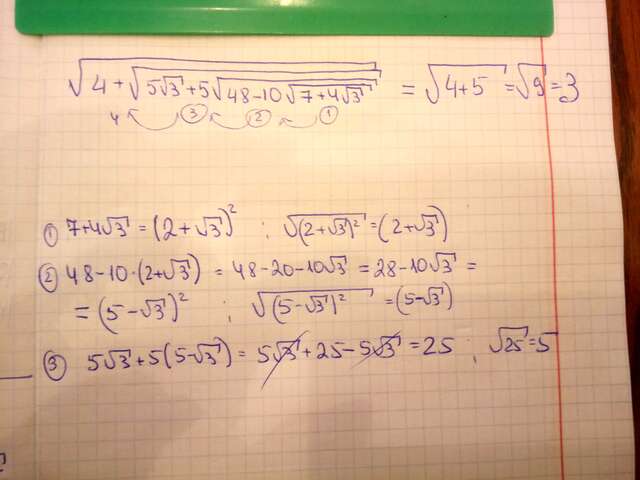 √(4+√(5√3+5√(48-10√(7+4√3)))) = √(4+5) = √9 = 3
4 ③ ② ①
① 7+4√3 = (2+√3)² ; √((2+√3)²) = (2+√3)
② 48-10·(2+√3) = 48-20-10√3 = 28-10√3 =
= (5-√3)² ; √((5-√3)²) = (5-√3)
③ 5√3+5(5-√3) = 5√3+25-5√3 = 25 ; √25=5